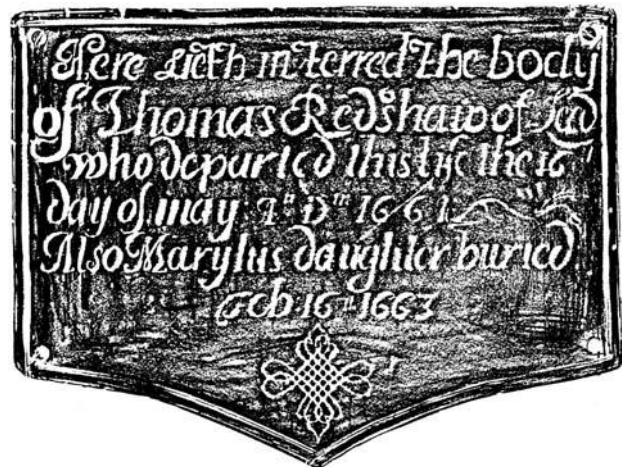 Here Lieth interred the body
of Thomas Redshaw of
who departed this life the 16
day of may Aⁿ Dᵐ 1661
Also Mary his daughter buried
Feb 16ᵗʰ 1663